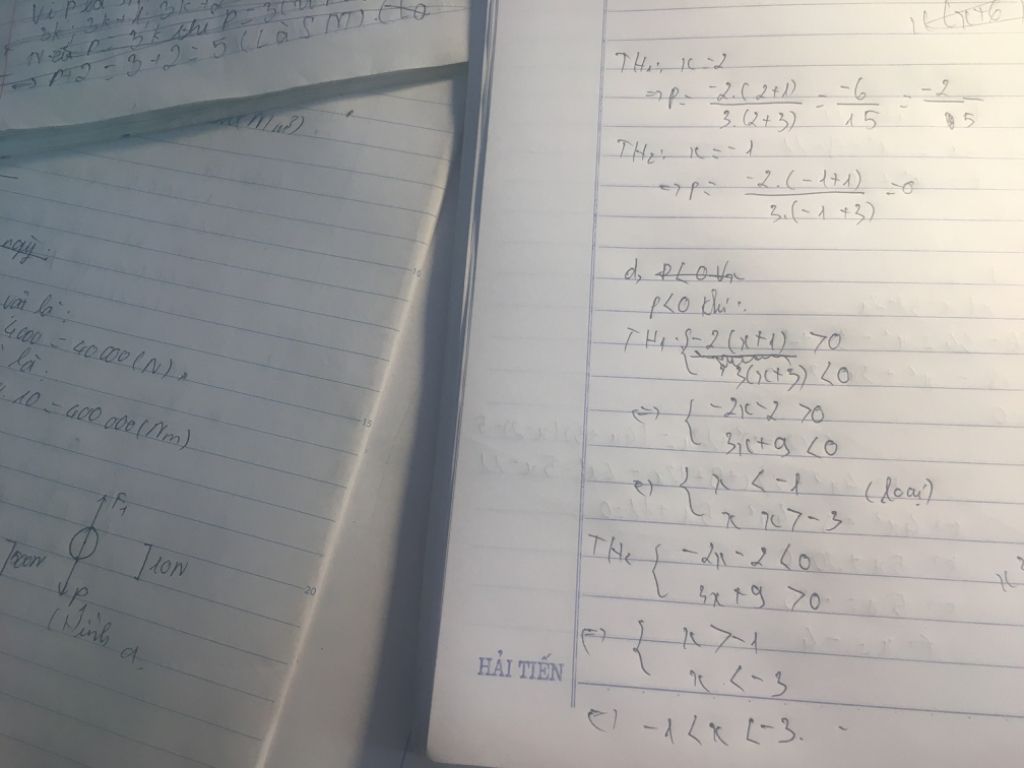 Vì p là
3k, 3k+1, 3k+2
Nếu p = 3k thì p = 3
→ p+2 = 3+2 = 5 (Là SNT).
ngày:
vải là:
4.000 = 40.000 (N).
là:
. 10 = 400.000 (Nm)
F₁
10N
P₁
(Hình
d.
x(x+6
TH₁: x = 2
=> P = \frac{-2.(2+1)}{3.(2+3)} = \frac{-6}{15} = \frac{-2}{5}
TH₂: x = -1
=> P = \frac{-2.(-1+1)}{3.(-1+3)} = 0
d,
P<0 khi:
TH₁: { -2(x+1) >0
3(x+3) <0
<=> { -2x-2 >0
3x+9 <0
<=> { x < -1 (loại)
x x > -3
TH₂ { -2x-2 <0
3x+9 >0
<=> { x > -1
x < -3
<=> -1 < x < -3.
HẢI TIẾN
15
20